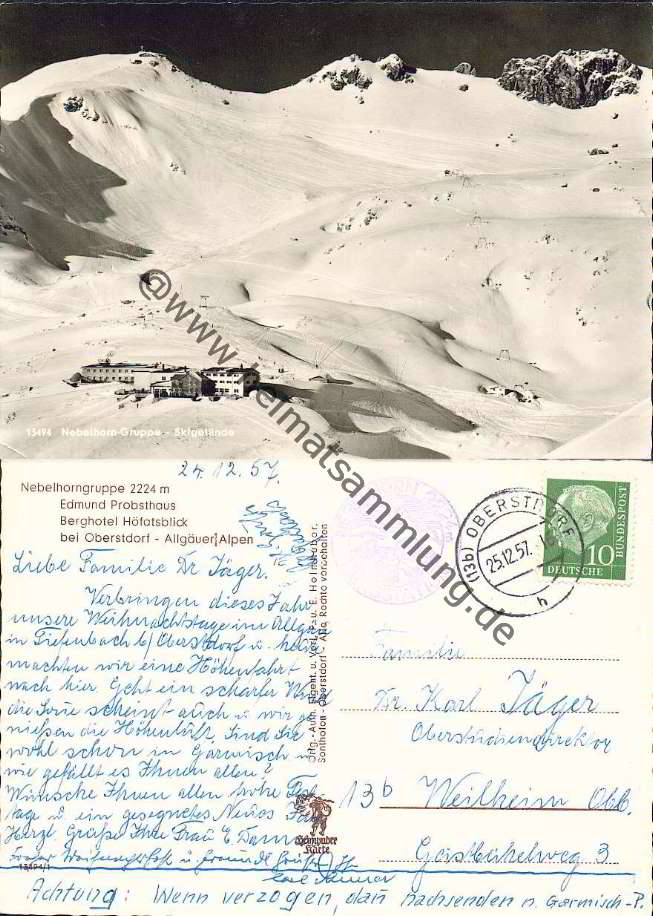 13494 Nebelhorn-Gruppe - Skigelände
@www.heimatsammlung.de
24.12.57.
Nebelhorngruppe 2224 m
Edmund Probsthaus
Berghotel Höfatsblick
bei Oberstdorf - Allgäuer Alpen
Liebe Familie Dr Jäger.
Verbringen dieses Jahr
unsere Weihnachtstage im Allgäu
in Tiefenbach b/ Oberstdorf u. heute
machten wir eine Höhenfahrt
nach hier. Geht ein scharfer Wind
die Sonne scheint auch u wir ge-
nießen die Höhenluft. Sind Sie
wohl schon in Garmisch u.
wie gefällt es Ihnen allen?
Wünsche Ihnen allen frohe Fest-
tage u ein gesegnetes Neues
Herzl. Grüße Ihre Frau E.
13494/1
Sonthofen - Oberstdorf - Alle Rechte vorbehalten
Heimhuber
Karte
(13b) OBERSTDORF
25.12.57.
h
10
DEUTSCHE
BUNDESPOST
Familie
Dr. Karl Jäger
Oberstudiendirektor
13b Weilheim Obb.
Gasbühelweg 3
Achtung: Wenn verzogen, dan nachsenden n. Garmisch-P.